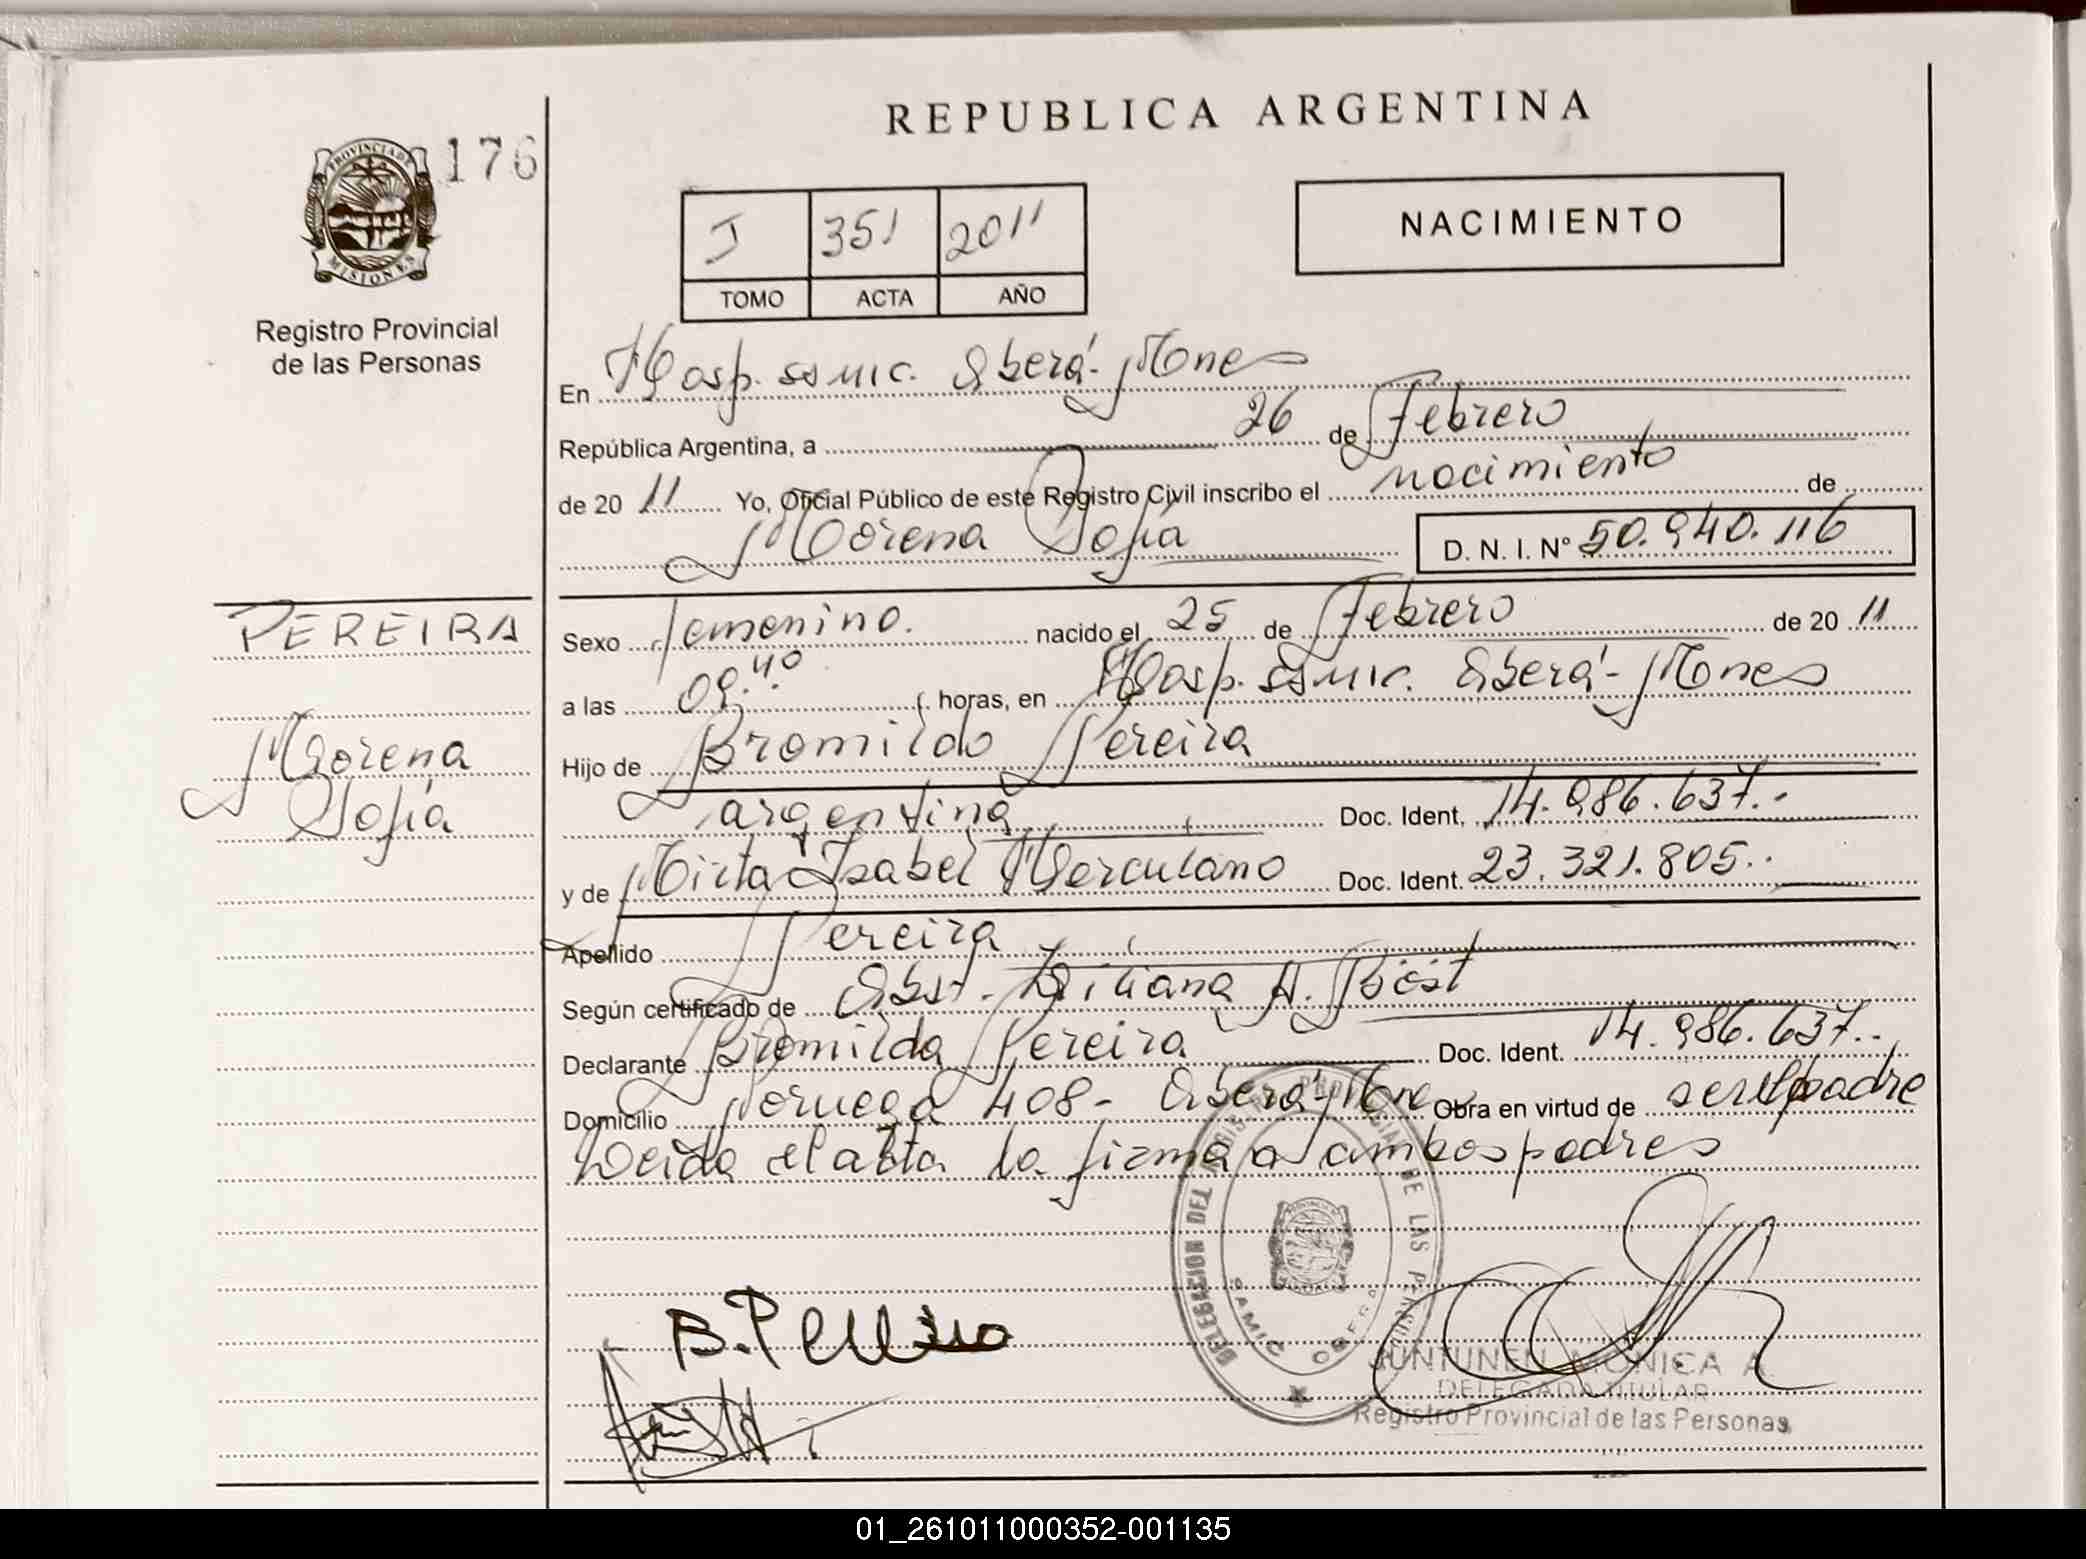 REPUBLICA ARGENTINA
PROVINCIA DE
MISIONES
176
Registro Provincial
de las Personas
I 351 2011
TOMO ACTA AÑO
NACIMIENTO
En Hosp. SSMIC. Oberá-Mnes
República Argentina, a 26 de Febrero
de 20 11 Yo, Oficial Público de este Registro Civil inscribo el nacimiento de
Morena Sofia D. N. I. Nº 50.940.116
PEREIRA
Morena
Sofia
Sexo femenino. nacido el 25 de Febrero de 20 11
a las 09.40 horas, en Hosp. SSMIC. Oberá-Mnes
Hijo de Bromildo Pereira
argentina Doc. Ident. 14.986.637.-
y de Mirta Isabel Herculano Doc. Ident. 23.321.805..
Apellido Pereira
Según certificado de Obst. Liliana A. Bost
Declarante Bromildo Pereira Doc. Ident. 14.986.637..
Domicilio Noruega 408- Oberá-Mnes Obra en virtud de ser el padre
Leida el acta la firman ambos padres
DELEGACION DEL REGISTRO PROVINCIAL DE LAS PERSONAS
SAMIC OBERA
B. Pereira
JUNTUNEN MONICA A.
DELEGADA TITULAR
Registro Provincial de las Personas
01_261011000352-001135